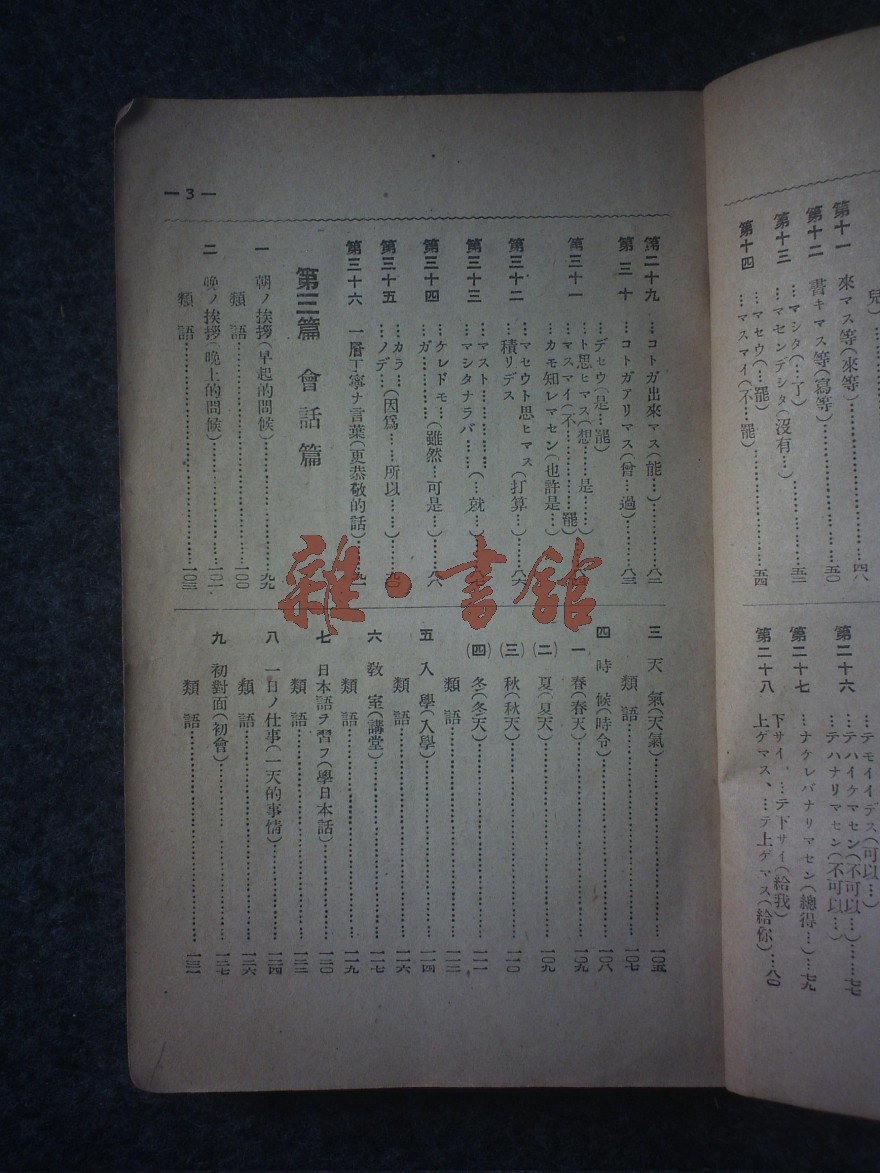 兒)
第十一 來マス等(來等)……四八
第十二 書キマス等(寫等)……五〇
…マシタ(…了)……五二
第十三 …マセンデシタ(沒有…)
…マセウ(…罷)
第十四 …マスマイ(不…罷)……五四
…テモイイデス(可以…)
…テハイケマセン(不可以…)……七七
第二十六 …テハナリマセン(不可以…)
第二十七 …ナケレバナリマセン(總得…)…七九
下サイ、…テ下サイ(給我)
第二十八 上ゲマス、…テ上ゲマス(給你)…八〇
— 3 —
第二十九 …コトガ出來マス(能…)……八二
第三十 …コトガアリマス(曾…過)……八三
…デセウ(是…罷)
…ト思ヒマス(想……是……)
第三十一 …マスマイ(不………罷)
…カモ知レマセン(也許是…)
…マセウト思ヒマス(打算…)……八六
第三十二 …積リデス
…マスト………………(…就…)
第三十三 …マシタナラバ……
…ケレドモ…(雖然…可是…)……八
第三十四 …ガ…………
…カラ…(因爲……所以……)……九〇
第三十五 …ノデ…
第三十六 一層丁寧ナ言葉(更恭敬的話)……九
第三篇 會話篇
一 朝ノ挨拶(早起的問候)……九九
類語……一〇〇
二 晚ノ挨拶(晚上的問候)……一〇一
類語……一〇三
三 天氣(天氣)……一〇五
類語……一〇七
四 時候(時令)……一〇八
一 春(春天)……一〇九
(二) 夏(夏天)……一〇九
(三) 秋(秋天)……一一〇
(四) 冬(冬天)……一一一
類語……一一三
五 入學(入學)……一一四
類語……一一六
六 教室(講堂)……一一七
類語……一一九
七 日本語ヲ習フ(學日本話)……一二〇
類語……一二三
八 一日ノ仕事(一天的事情)……一二四
類語……一二六
九 初對面(初會)……一二七
類語……一三一
雜·書館